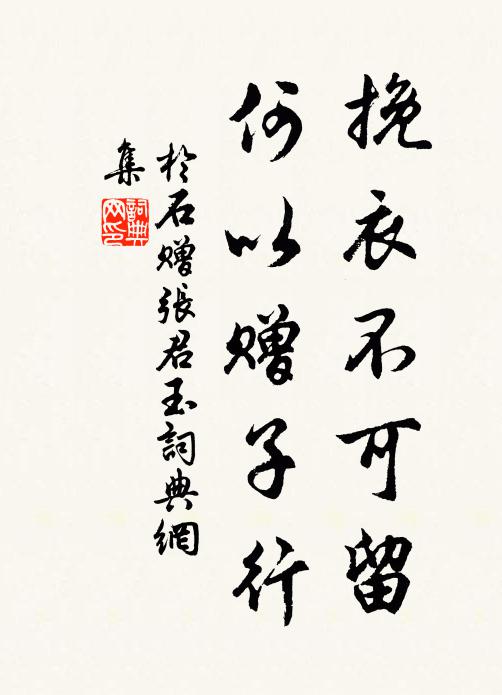 挽衣不可留
何以贈子行
於石贈張君玉詞典網
集
詞典
网印